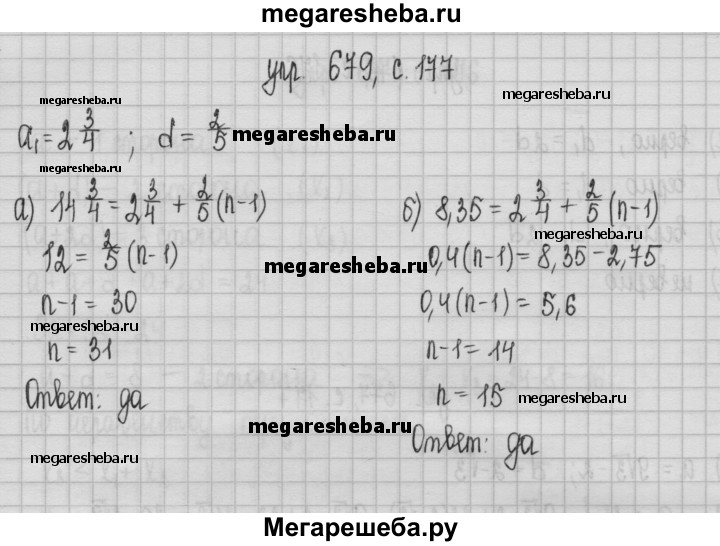 megaresheba.ru
упр. 679, с. 177
megaresheba.ru
megaresheba.ru
a₁ = 2 3/4 ; d = 2/5
megaresheba.ru
megaresheba.ru
а) 14 3/4 = 2 3/4 + 2/5 (n-1)
12 = 2/5 (n-1)
n-1 = 30
megaresheba.ru
n = 31
Ответ: да
megaresheba.ru
б) 8,35 = 2 3/4 + 2/5 (n-1)
megaresheba.ru
megaresheba.ru
0,4(n-1) = 8,35 - 2,75
0,4(n-1) = 5,6
megaresheba.ru
n-1 = 14
n = 15
megaresheba.ru
megaresheba.ru
Ответ: да
Мегарешеба.ру